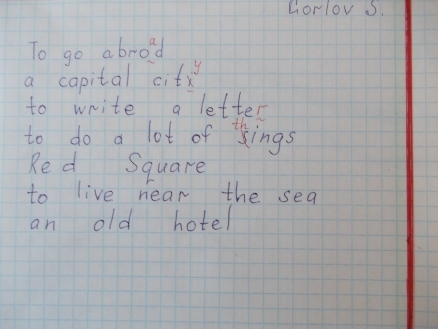 Gorlov S.
To go abrod a
a capital citx y
to write a letter
to do a lot of sings th
Red Square
to live near the sea
an old hotel